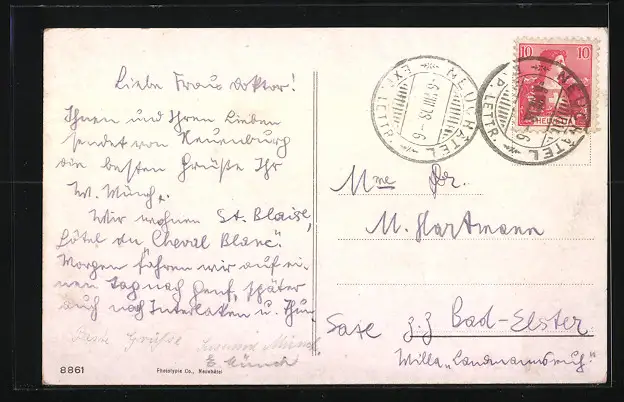 Liebe Frau Doktor!
Ihnen und Ihren Lieben
sendet von Neuenburg
die besten Grüße Ihr
W. Münch.
Wir wohnen St. Blaise,
Hôtel du Cheval Blanc".
Morgen fahren wir auf ei-
nen Tag nach Genf, später
auch nach Interlaken u. Thun
Beste Grüße Münch
E. Münch
8861
Phototypie Co., Neuchâtel
NEUCHATEL
EXP. LETTR.
NEUCHATEL
EXP. LETTR.
10 10
HELVETIA
Mme Dr.
M. Hartmann
Saxe z.Z Bad-Elster
Villa „Landmannsruh"